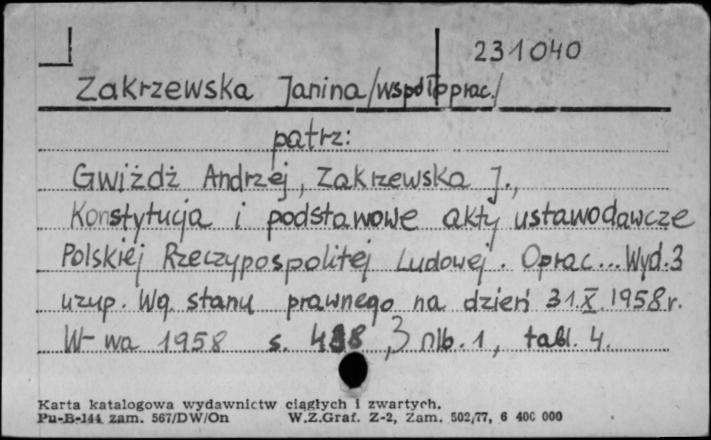 231040
Zakrzewska Janina /współpprac./
patrz:
Gwiżdż Andrzej, Zakrzewska J.,
Konstytucja i podstawowe akty ustawodawcze
Polskiej Rzeczypospolitej Ludowej. Oprac... Wyd.3
uzup. Wg. stanu prawnego na dzień 31.X.1958r.
W-wa 1958 s. , 3 nlb. 1, tabl. 4.
Karta katalogowa wydawnictw ciągłych i zwartych.
Pu-B-144 zam. 567/DW/On W.Z.Graf. Z-2, Zam. 502/77, 6 400 000